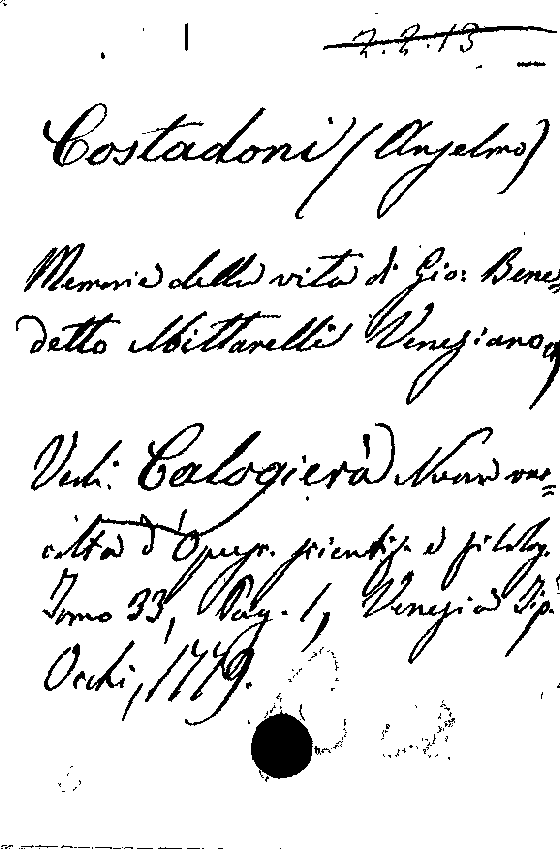 2.2.13
Costadoni (Anselmo)
Memorie della vita di Gio: Bene=
detto Mittarelli Veneziano,
Vedi: Calogierà Nuova rac=
colta d'Opusc. scientif. e filolog.
Tomo 33, Pag. 1, Venezia Tip.
Occhi, 1779.